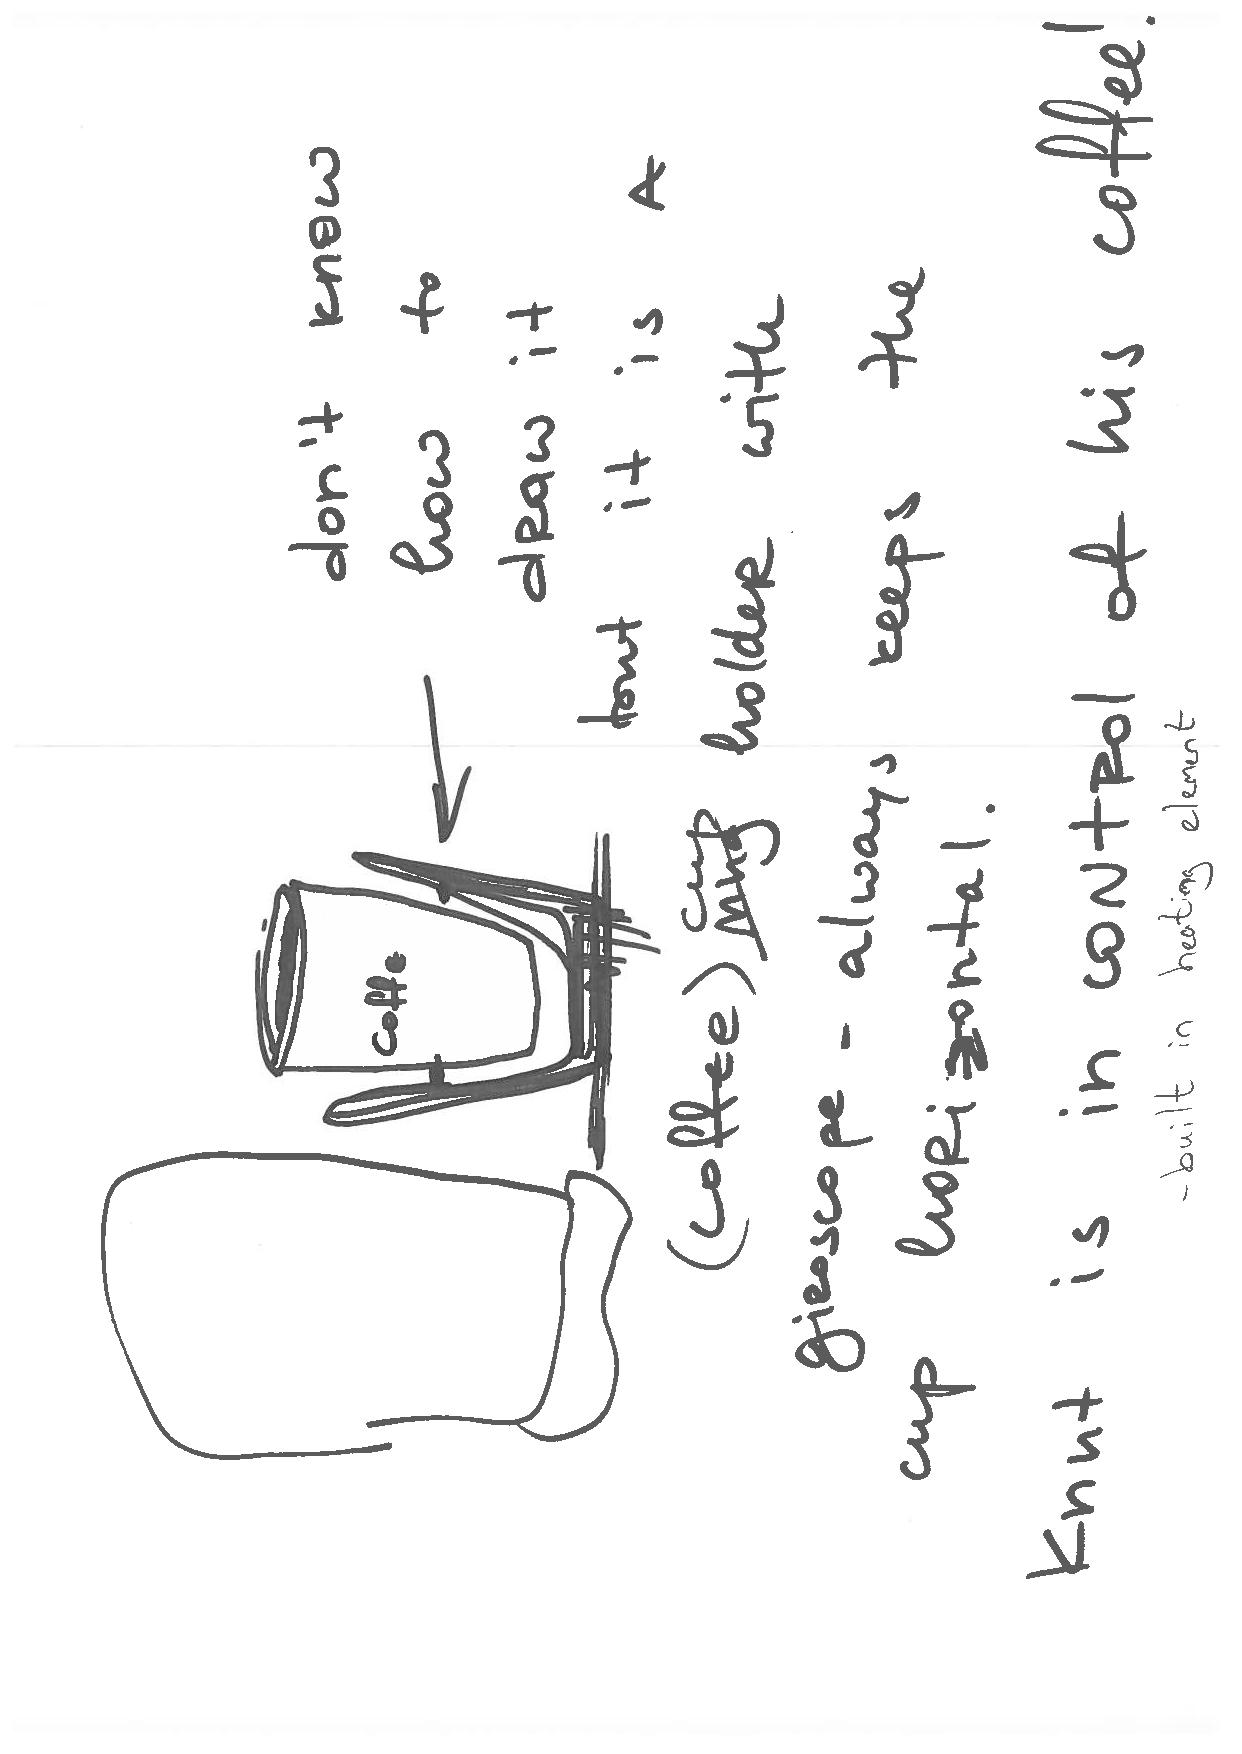 don't know
how to
draw it
but it is a
Coffe
(coffee) cup holder with
giroscope - always keeps the
cup horizontal.
Knut is in control of his coffee!
-built in heating element